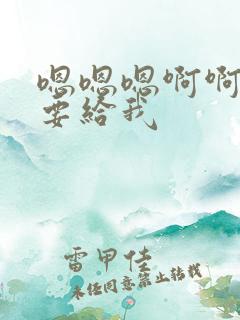 嗯嗯嗯啊啊
要给我
雷甲佳
未经同意禁止转载